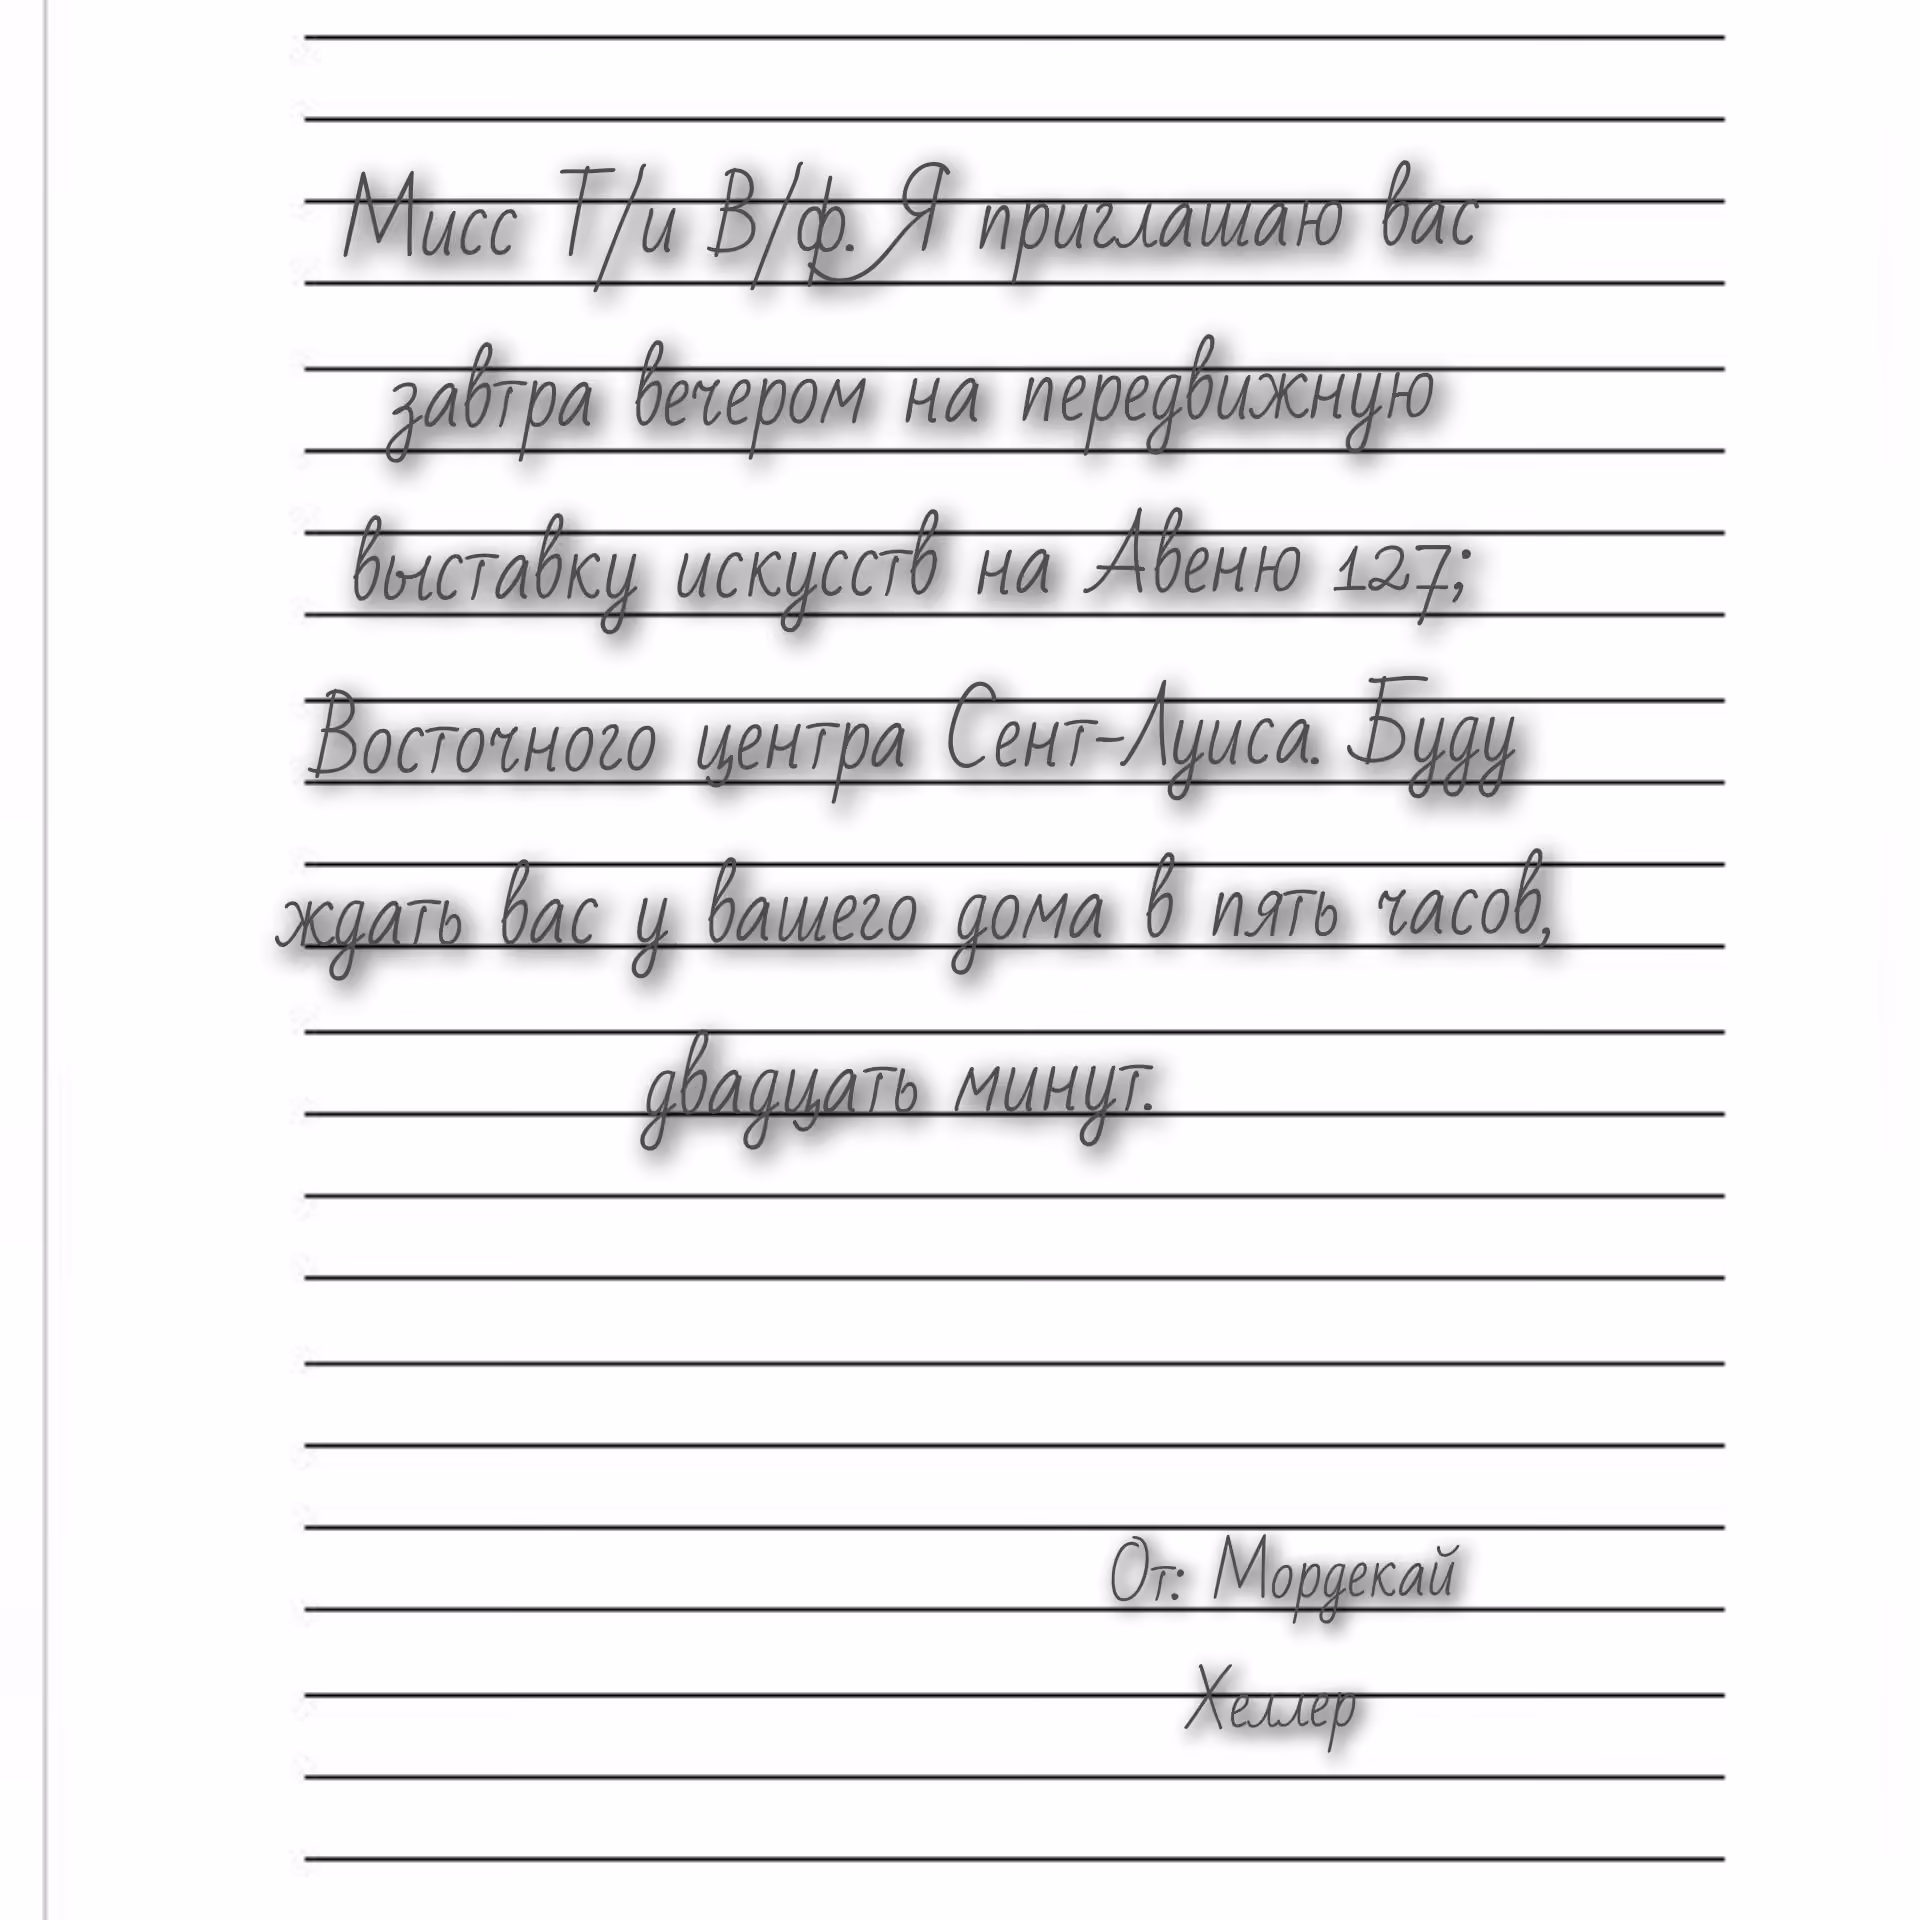 Мисс Т/и В/ф. Я приглашаю вас
завтра вечером на передвижную
выставку искусств на Авеню 127;
Восточного центра Сент-Луиса. Буду
ждать вас у вашего дома в пять часов,
двадцать минут.
От: Мордекай
Хеллер